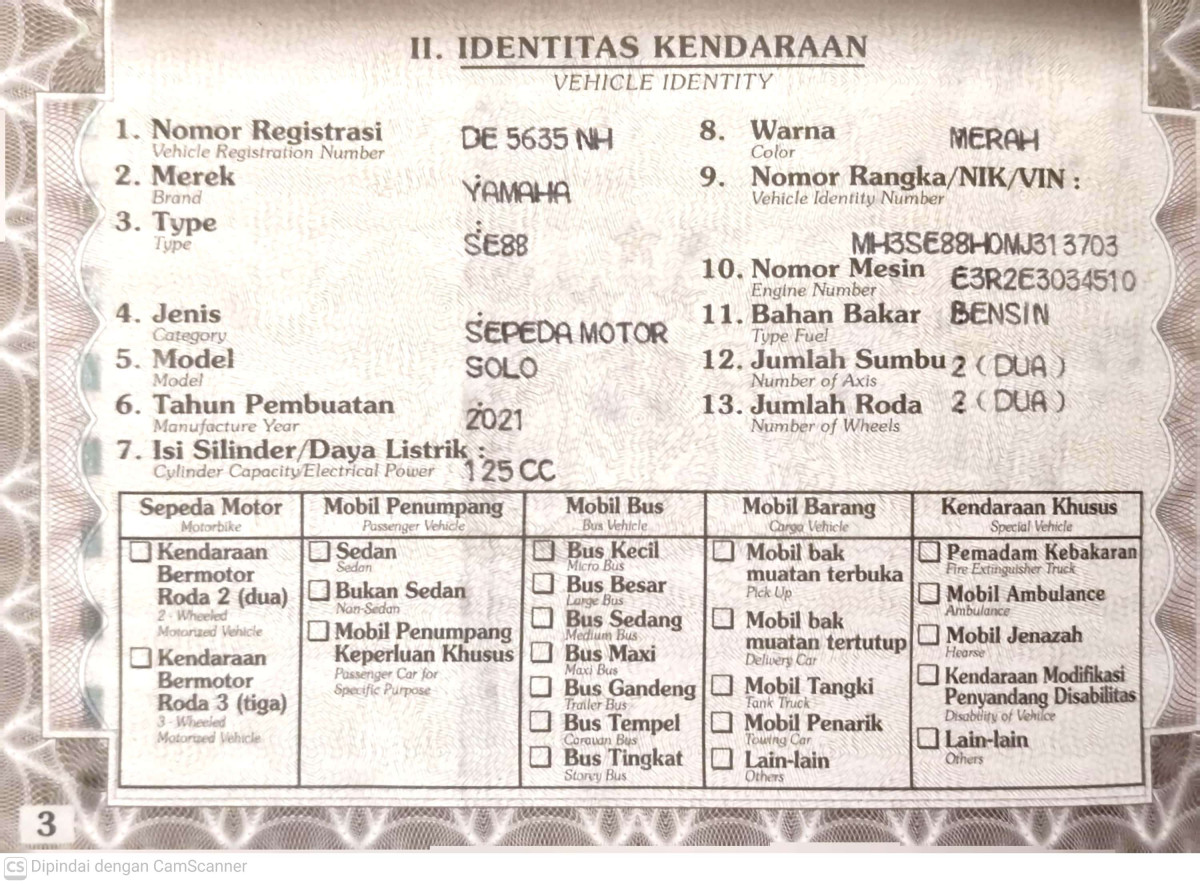 II. IDENTITAS KENDARAAN
VEHICLE IDENTITY
1. Nomor Registrasi : DE 5635 NH
Vehicle Registration Number
2. Merek : YAMAHA
Brand
3. Type : SE88
Type
4. Jenis : SEPEDA MOTOR
Category
5. Model SOLO
Model
6. Tahun Pembuatan : 2021
Manufacture Year
7. Isi Silinder/Daya Listrik : 125 CC
Cylinder Capacity/Electrical Power
8. Warna MERAH
Color
9. Nomor Rangka/NIK/VIN :
Vehicle Identity Number
MH3SE88H0MJ313703
10. Nomor Mesin E3R2E3034510
Engine Number
11. Bahan Bakar BENSIN
Type Fuel
12. Jumlah Sumbu 2 ( DUA )
Number of Axis
13. Jumlah Roda 2 ( DUA )
Number of Wheels
Sepeda Motor
Motorbike
Kendaraan
Bermotor
Roda 2 (dua)
2 - Wheeled
Motorized Vehicle
Kendaraan
Bermotor
Roda 3 (tiga)
3 - Wheeled
Motorized Vehicle
Mobil Penumpang
Passenger Vehicle
Sedan
Sedan
Bukan Sedan
Non-Sedan
Mobil Penumpang
Keperluan Khusus
Passenger Car for
Specific Purpose
Mobil Bus
Bus Vehicle
Bus Kecil
Micro Bus
Bus Besar
Large Bus
Bus Sedang
Medium Bus
Bus Maxi
Maxi Bus
Bus Gandeng
Trailer Bus
Bus Tempel
Caravan Bus
Bus Tingkat
Storey Bus
Mobil Barang
Cargo Vehicle
Mobil bak
muatan terbuka
Pick Up
Mobil bak
muatan tertutup
Delivery Car
Mobil Tangki
Tank Truck
Mobil Penarik
Towing Car
Lain-lain
Others
Kendaraan Khusus
Special Vehicle
Pemadam Kebakaran
Fire Extinguisher Truck
Mobil Ambulance
Ambulance
Mobil Jenazah
Hearse
Kendaraan Modifikasi
Penyandang Disabilitas
Disability of Vehlice
Lain-lain
Others
3
CS Dipindai dengan CamScanner